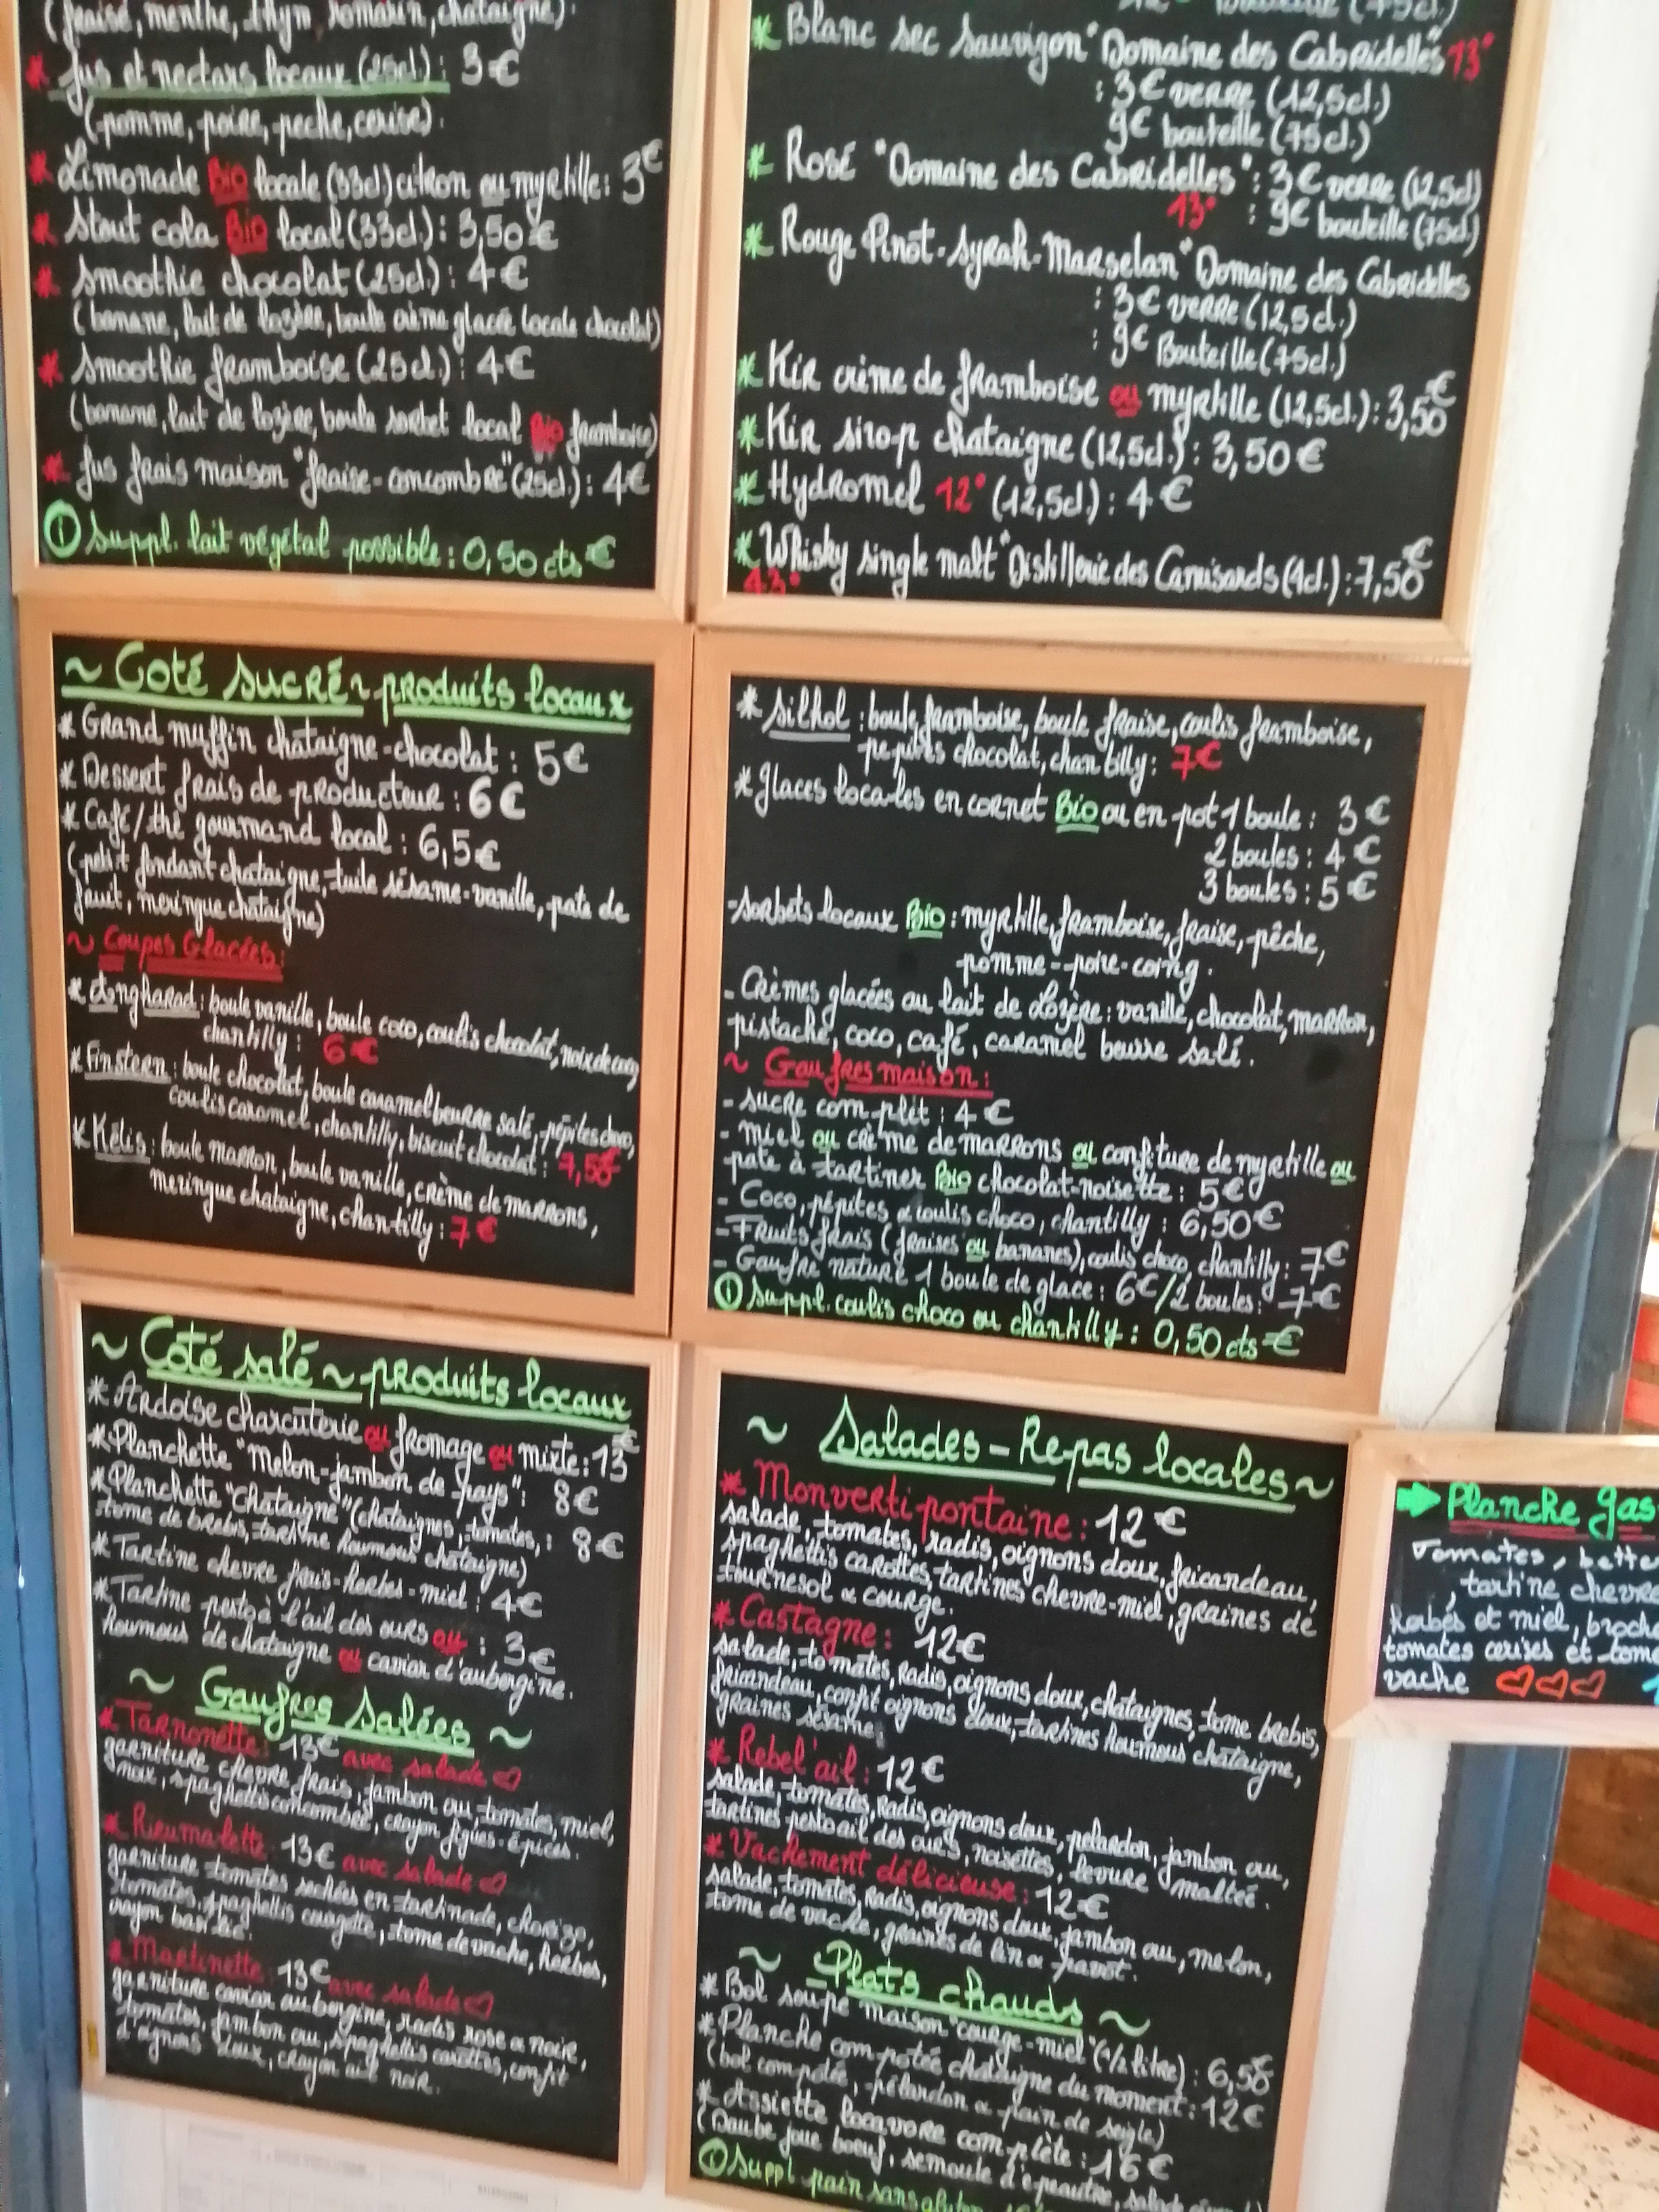 (fraise, menthe, thym, romarin, chataigne).
* Jus et nectars locaux (25cl) : 3€
(pomme, poire, peche, cerise).
* Limonade Bio locale (33cl) citron ou myrtille : 3€
* Stout cola Bio local (33cl.) : 3,50€
* Smoothie chocolat (25cl.) : 4€
(banane, lait de lozère, boule crème glacée locale chocolat)
* Smoothie framboise (25cl.) : 4€
(banane, lait de lozère, boule sorbet local Bio framboise)
* Jus frais maison "fraise-concombre" (25cl.) : 4€
① Suppl. lait végétal possible : 0,50 cts €
Bouteille (75cl.)
* Blanc sec Sauvignon "Domaine des Cabridelles" 13°
: 3€ verre (12,5cl.)
9€ bouteille (75cl.)
* Rosé "Domaine des Cabridelles" : 3€ verre (12,5cl)
13° : 9€ bouteille (75cl)
* Rouge Pinot-Syrah-Marselan "Domaine des Cabridelles
: 3€ verre (12,5cl.)
: 9€ Bouteille (75cl.)
* Kir crème de framboise ou myrtille (12,5cl.) : 3,50€
* Kir sirop chataigne (12,5cl.) : 3,50€
* Hydromel 12° (12,5cl.) : 4€
* Whisky single malt "Distillerie des Camisards (4cl.) : 7,50€
43°
~ Coté sucré ~ produits locaux
* Grand muffin chataigne-chocolat : 5€
* Dessert frais de producteur : 6€
* Café/thé gourmand local : 6,5€
(petit fondant chataigne, tuile sésame-vanille, pate de
fruit, meringue chataigne)
~ Coupes Glacées :
* Angharad : boule vanille, boule coco, coulis chocolat, noix de coco,
chantilly : 6€
* Finstern : boule chocolat, boule caramel beurre salé, pépites choco,
coulis caramel, chantilly, biscuit chocolat : 7,50€
* Kélis : boule marron, boule vanille, crème de marrons,
meringue chataigne, chantilly : 7€
* Silhol : boule framboise, boule fraise, coulis framboise,
pepites chocolat, chantilly : 7€
* Glaces locales en cornet Bio ou en pot 1 boule : 3€
2 boules : 4€
3 boules : 5€
- Sorbets locaux Bio : myrtille, framboise, fraise, pêche,
pomme-poire-coing.
- Crèmes glacées au lait de Lozère : vanille, chocolat, marron,
pistache, coco, café, caramel beurre salé.
~ Gaufres maison :
- sucre complèt : 4€
- miel ou crème de marrons ou confiture de myrtille ou
pate à tartiner Bio chocolat-noisette : 5€
- Coco, pépites & coulis choco, chantilly : 6,50€
- Fruits frais (fraises ou bananes), coulis choco, chantilly : 7€
- Gaufre nature 1 boule de glace : 6€/2 boules : 7€
① Suppl. coulis choco ou chantilly : 0,50 cts €
~ Coté salé ~ produits locaux
* Ardoise charcuterie ou fromage ou mixte : 13€
* Planchette "Melon-jambon de pays" : 8€
* Planchette "Chataigne" (chataignes, tomates, : 8€
tome de brebis, tartine houmous chataigne)
* Tartine chevre frais-herbes-miel : 4€
* Tartine pesto à l'ail des ours ou : 3€
houmous de chataigne ou caviar d'aubergine.
~ Gaufres Salées ~
* Tarnonette : 13€ avec salade ♡
garniture chevre frais, jambon cru, tomates, miel,
noix, spaghettis concombre, crayon figues-épices.
* Rieumalette : 13€ avec salade ♡
garniture tomates sechées en tartinade, chorizo,
tomates, spaghettis courgette, tome de vache, herbes,
crayon basilic.
* Martinette : 13€ avec salade ♡
garniture caviar aubergine, radis rose & noir,
tomates, jambon cru, spaghettis carottes, confit
d'oignons doux, crayon ail noir.
~ Salades - Repas locales ~
* Monvertipontaine : 12€
salade, tomates, radis, oignons doux, fricandeau,
spaghettis carottes, tartines chevre-miel, graines de
tournesol & courge.
* Castagne : 12€
salade, tomates, radis, oignons doux, chataignes, tome brebis,
fricandeau, confit oignons doux, tartines houmous chataigne,
graines sésame.
* Rebel'ail : 12€
salade, tomates, radis, oignons doux, pelardon, jambon cru,
tartines pesto ail des ours, noisettes, levure maltée.
* Vachement délicieuse : 12€
salade, tomates, radis, oignons doux, jambon cru, melon,
tome de vache, graines de lin & pavot.
~ Plats chauds ~
* Bol soupe maison "courge-miel" (1/2 litre) : 6,50€
* Planche compotée chataigne du moment : 12€
(bol compotée, pélardon & pain de seigle)
* Assiette locavore complète : 16€
(Daube joue boeuf, semoule d'épeautre, salade
① Suppl pain sans gluten
➡ Planche gas
Tomates, bette
, tartine chevre
herbes et miel, broche
tomates cerises et tome
vache ♡♡♡